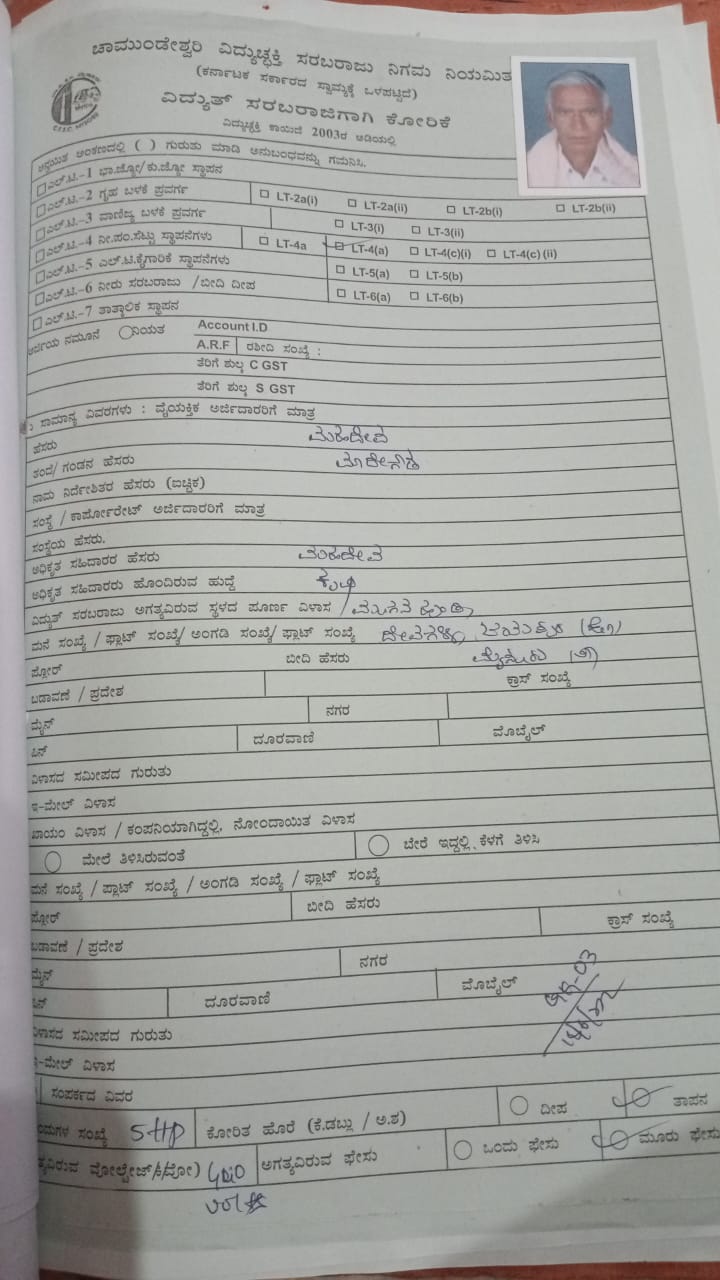 ಚಾಮುಂಡೇಶ್ವರಿ ವಿದ್ಯುಚ್ಛಕ್ತಿ ಸರಬರಾಜು ನಿಗಮ ನಿಯಮಿತ
(ಕರ್ನಾಟಕ ಸರ್ಕಾರದ ಸ್ವಾಮ್ಯಕ್ಕೆ ಒಳಪಟ್ಟಿದೆ)
ವಿದ್ಯುತ್ ಸರಬರಾಜಿಗಾಗಿ ಕೋರಿಕೆ
ವಿದ್ಯುಚ್ಛಕ್ತಿ ಕಾಯಿದೆ 2003ರ ಅಡಿಯಲ್ಲಿ
ಅನ್ವಯಿತ ಅಂಕಣದಲ್ಲಿ ( ) ಗುರುತು ಮಾಡಿ ಅನುಬಂಧವನ್ನು ಗಮನಿಸಿ.
ಎಲ್.ಟಿ.-1 ಭಾ.ಜ್ಯೋ/ಕು.ಜ್ಯೋ ಸ್ಥಾಪನ
ಎಲ್.ಟಿ.-2 ಗೃಹ ಬಳಕೆ ಪ್ರವರ್ಗ LT-2a(i) LT-2a(ii) LT-2b(i) LT-2b(ii)
ಎಲ್.ಟಿ.-3 ವಾಣಿಜ್ಯ ಬಳಕೆ ಪ್ರವರ್ಗ LT-3(i) LT-3(ii)
ಎಲ್.ಟಿ.-4 ನೀ.ಪಂ.ಸೆಟ್ಟು ಸ್ಥಾಪನೆಗಳು LT-4a LT-4(a) LT-4(c)(i) LT-4(c)(ii)
ಎಲ್.ಟಿ.-5 ಎಲ್.ಟಿ.ಕೈಗಾರಿಕೆ ಸ್ಥಾಪನೆಗಳು LT-5(a) LT-5(b)
ಎಲ್.ಟಿ.-6 ನೀರು ಸರಬರಾಜು /ಬೀದಿ ದೀಪ LT-6(a) LT-6(b)
ಎಲ್.ಟಿ.-7 ತಾತ್ಕಾಲಿಕ ಸ್ಥಾಪನ
ಅರ್ಜಿಯ ನಮೂನೆ ನಿಯತ Account I.D
A.R.F ರಶೀದಿ ಸಂಖ್ಯೆ :
ತೆರಿಗೆ ಶುಲ್ಕ C GST
ತೆರಿಗೆ ಶುಲ್ಕ S GST
ಸಾಮಾನ್ಯ ವಿವರಗಳು : ವೈಯಕ್ತಿಕ ಅರ್ಜಿದಾರರಿಗೆ ಮಾತ್ರ
ಹೆಸರು ಮಹದೇವ
ತಂದೆ/ ಗಂಡನ ಹೆಸರು ಮಾದೇಗೌಡ
ನಾಮ ನಿರ್ದೇಶಿತರ ಹೆಸರು (ಐಚ್ಛಿಕ)
ಸಂಸ್ಥೆ / ಕಾರ್ಪೋರೇಟ್ ಅರ್ಜಿದಾರರಿಗೆ ಮಾತ್ರ
ಸಂಸ್ಥೆಯ ಹೆಸರು.
ಅಧಿಕೃತ ಸಹಿದಾರರ ಹೆಸರು ಮಹದೇವ
ಅಧಿಕೃತ ಸಹಿದಾರರು ಹೊಂದಿರುವ ಹುದ್ದೆ
ವಿದ್ಯುತ್ ಸರಬರಾಜು ಅಗತ್ಯವಿರುವ ಸ್ಥಳದ ಪೂರ್ಣ ವಿಳಾಸ /
ಮನೆ ಸಂಖ್ಯೆ / ಫ್ಲಾಟ್ ಸಂಖ್ಯೆ/ ಅಂಗಡಿ ಸಂಖ್ಯೆ/ ಫ್ಲಾಟ್ ಸಂಖ್ಯೆ
ಫ್ಲೋರ್ ಬೀದಿ ಹೆಸರು ಮೈಸೂರು
ಬಡಾವಣೆ / ಪ್ರದೇಶ ಕ್ರಾಸ್ ಸಂಖ್ಯೆ
ಮೈನ್ ನಗರ
ಪಿನ್ ದೂರವಾಣಿ ಮೊಬೈಲ್
ವಿಳಾಸದ ಸಮೀಪದ ಗುರುತು
ಇ-ಮೇಲ್ ವಿಳಾಸ
ಖಾಯಂ ವಿಳಾಸ / ಕಂಪನಿಯಾಗಿದ್ದಲ್ಲಿ, ನೋಂದಾಯಿತ ವಿಳಾಸ
ಮೇಲೆ ತಿಳಿಸಿರುವಂತೆ ಬೇರೆ ಇದ್ದಲ್ಲಿ ಕೆಳಗೆ ತಿಳಿಸಿ
ಮನೆ ಸಂಖ್ಯೆ / ಪ್ಲಾಟ್ ಸಂಖ್ಯೆ / ಅಂಗಡಿ ಸಂಖ್ಯೆ / ಫ್ಲಾಟ್ ಸಂಖ್ಯೆ
ಫ್ಲೋರ್ ಬೀದಿ ಹೆಸರು
ಬಡಾವಣೆ / ಪ್ರದೇಶ ಕ್ರಾಸ್ ಸಂಖ್ಯೆ
ಮೈನ್ ನಗರ
ಪಿನ್ ದೂರವಾಣಿ ಮೊಬೈಲ್
ವಿಳಾಸದ ಸಮೀಪದ ಗುರುತು
ಇ-ಮೇಲ್ ವಿಳಾಸ
ಸಂಪರ್ಕದ ವಿವರ
ಸಂಖ್ಯೆ 5 HP ಕೋರಿತ ಹೊರೆ (ಕೆ.ಡಬ್ಲು / ಅ.ಶ) ದೀಪ ತಾಪನ
ಅಗತ್ಯವಿರುವ ಫೇಸು ಒಂದು ಫೇಸು ಮೂರು ಫೇಸು